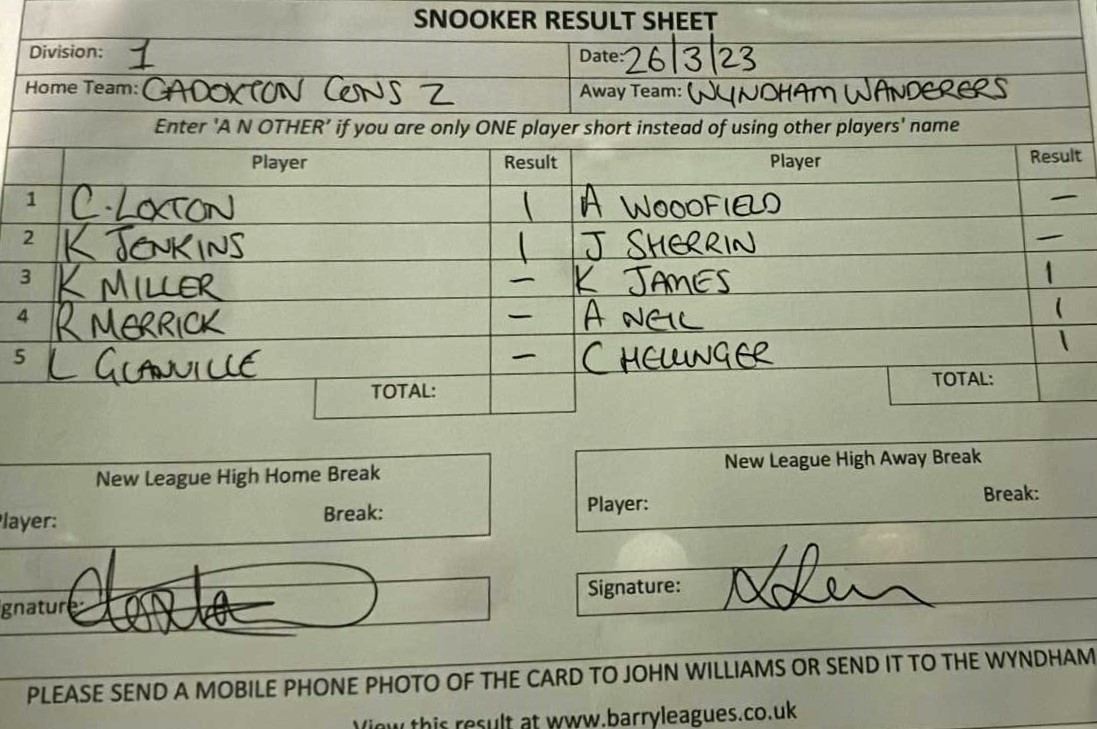 SNOOKER RESULT SHEET
Division: 1 Date: 26/3/23
Home Team: CADOXTON CONS 2 Away Team: WYNDHAM WANDERERS
Enter 'A N OTHER' if you are only ONE player short instead of using other players' name
Player Result Player Result
1 C. LOXTON 1 A WOODFIELD —
2 K JENKINS 1 J SHERRIN —
3 K MILLER — K JAMES 1
4 R MERRICK — A NEIL 1
5 L GLANVILLE — C HELLINGER 1
TOTAL: TOTAL:
New League High Home Break New League High Away Break
Player: Break: Player: Break:
Signature: Signature:
PLEASE SEND A MOBILE PHONE PHOTO OF THE CARD TO JOHN WILLIAMS OR SEND IT TO THE WYNDHAM
View this result at www.barryleagues.co.uk